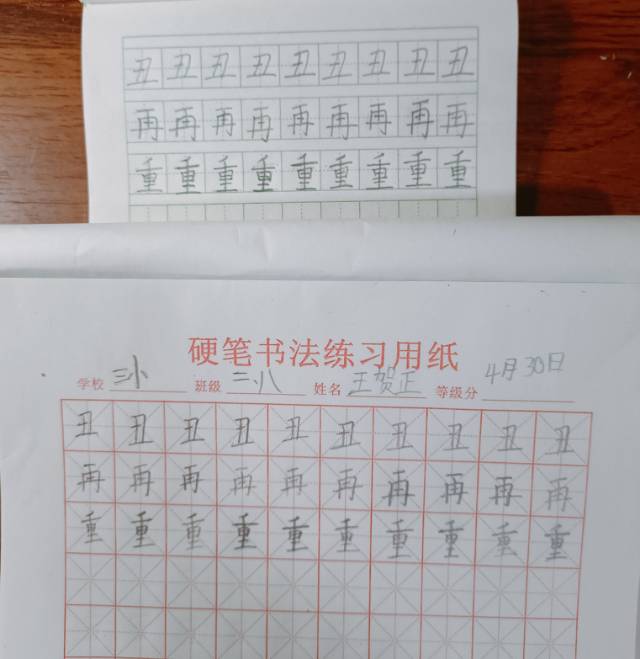 丑丑丑丑丑丑丑丑丑
再再再再再再再再再
重重重重重重重重重
硬笔书法练习用纸
学校 三小 班级 三、八 姓名 王贺正 等级分 4月30日
丑丑丑丑丑丑丑丑丑丑
再再再再再再再再再再
重重重重重重重重重重